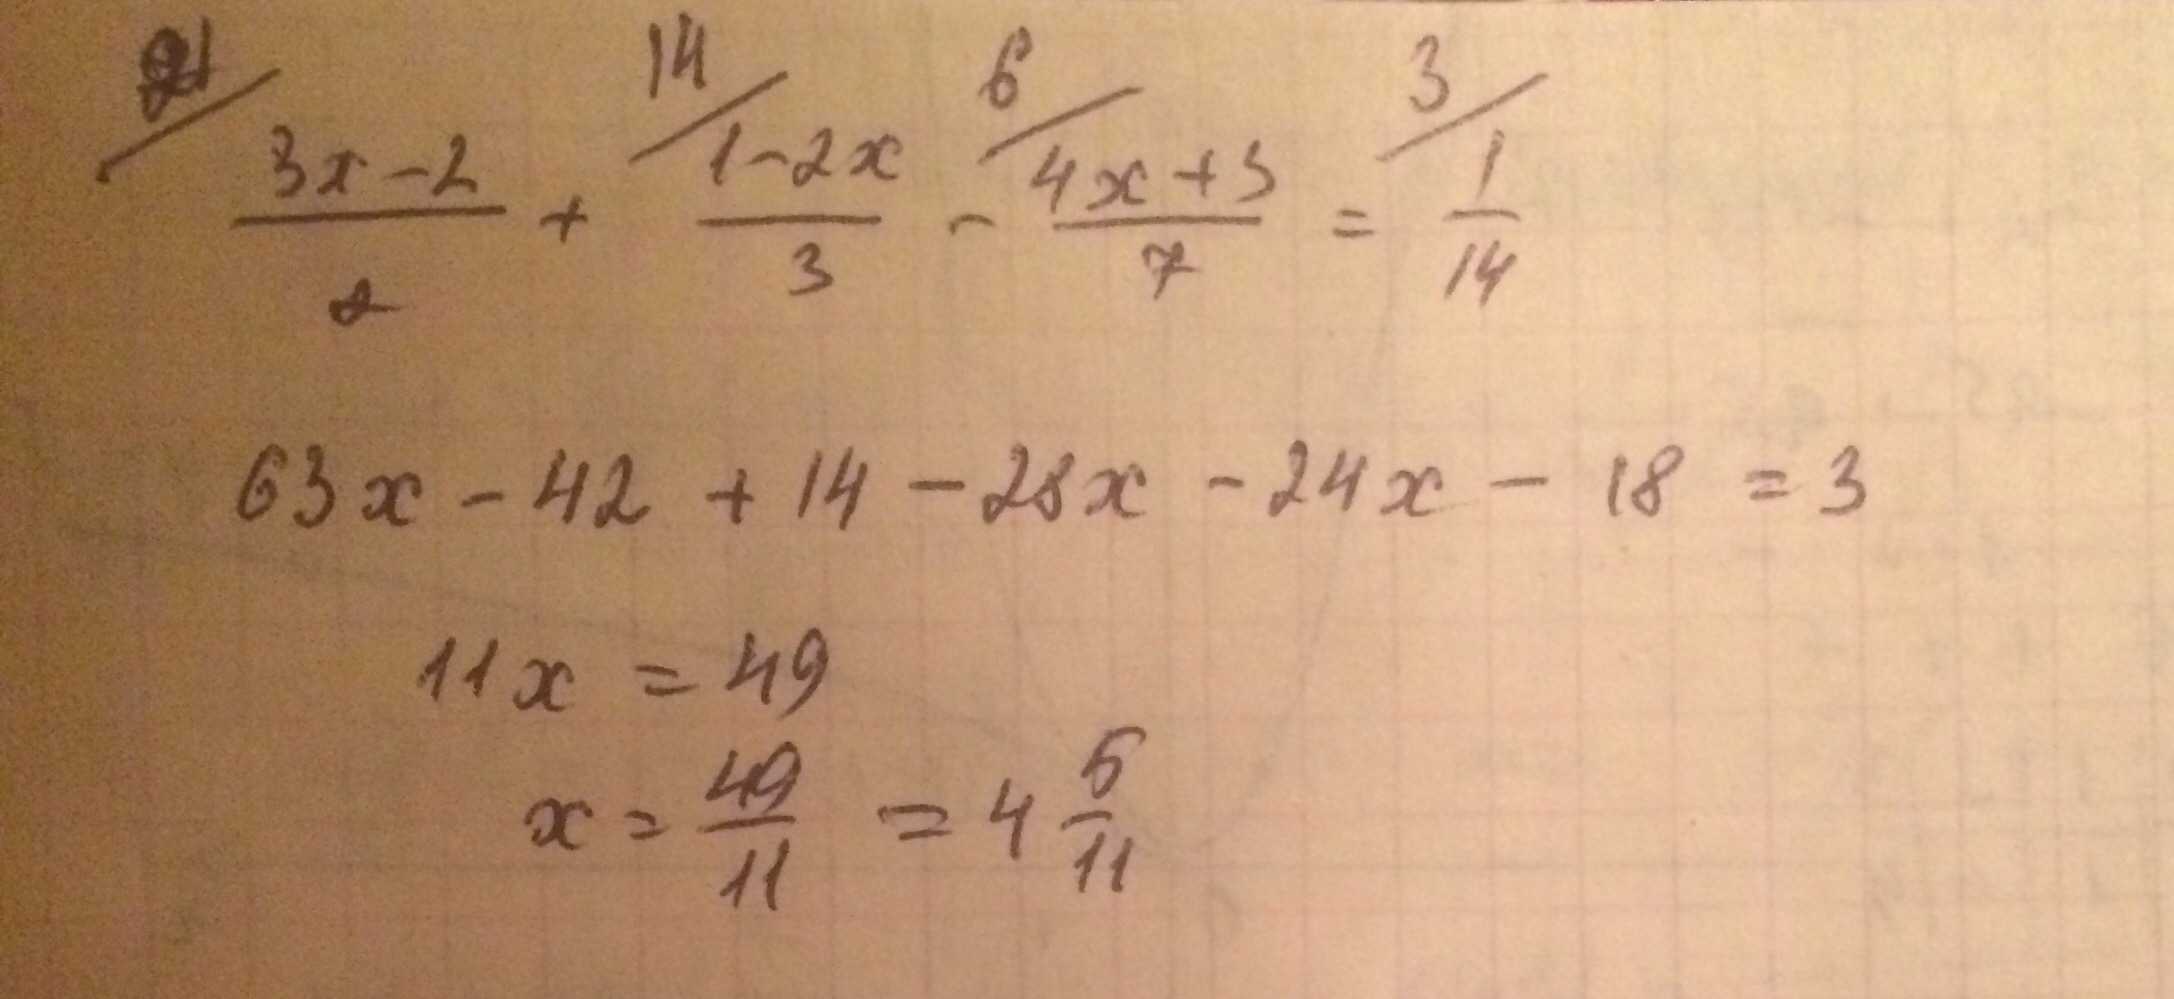 21/ (3x-2)/2 + 14/ (1-2x)/3 - 6/ (4x+3)/7 = 3/ 1/14
63x - 42 + 14 - 28x - 24x - 18 = 3
11x = 49
x = 49/11 = 4 5/11